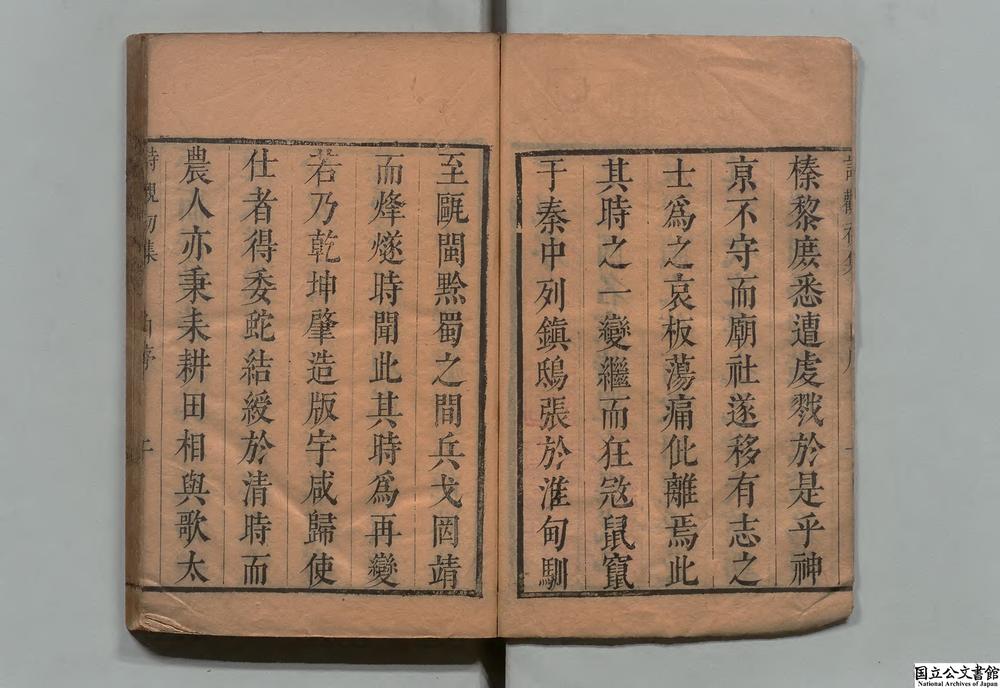 榛黎庶悉遭虔戮於是乎神
亰不守而廟社遂移有志之
士爲之哀板蕩痛仳離焉此
其時之一變繼而狂宼鼠竄
于秦中列鎮鴟張於淮甸馴
至甌閩黔蜀之間兵戈罔靖
而烽燧時聞此其時爲再變
若乃乾坤肇造版宇咸歸使
仕者得委蛇結綬於清時而
農人亦秉耒耕田相與歌太
詩觀初集
国立公文書館
National Archives of Japan